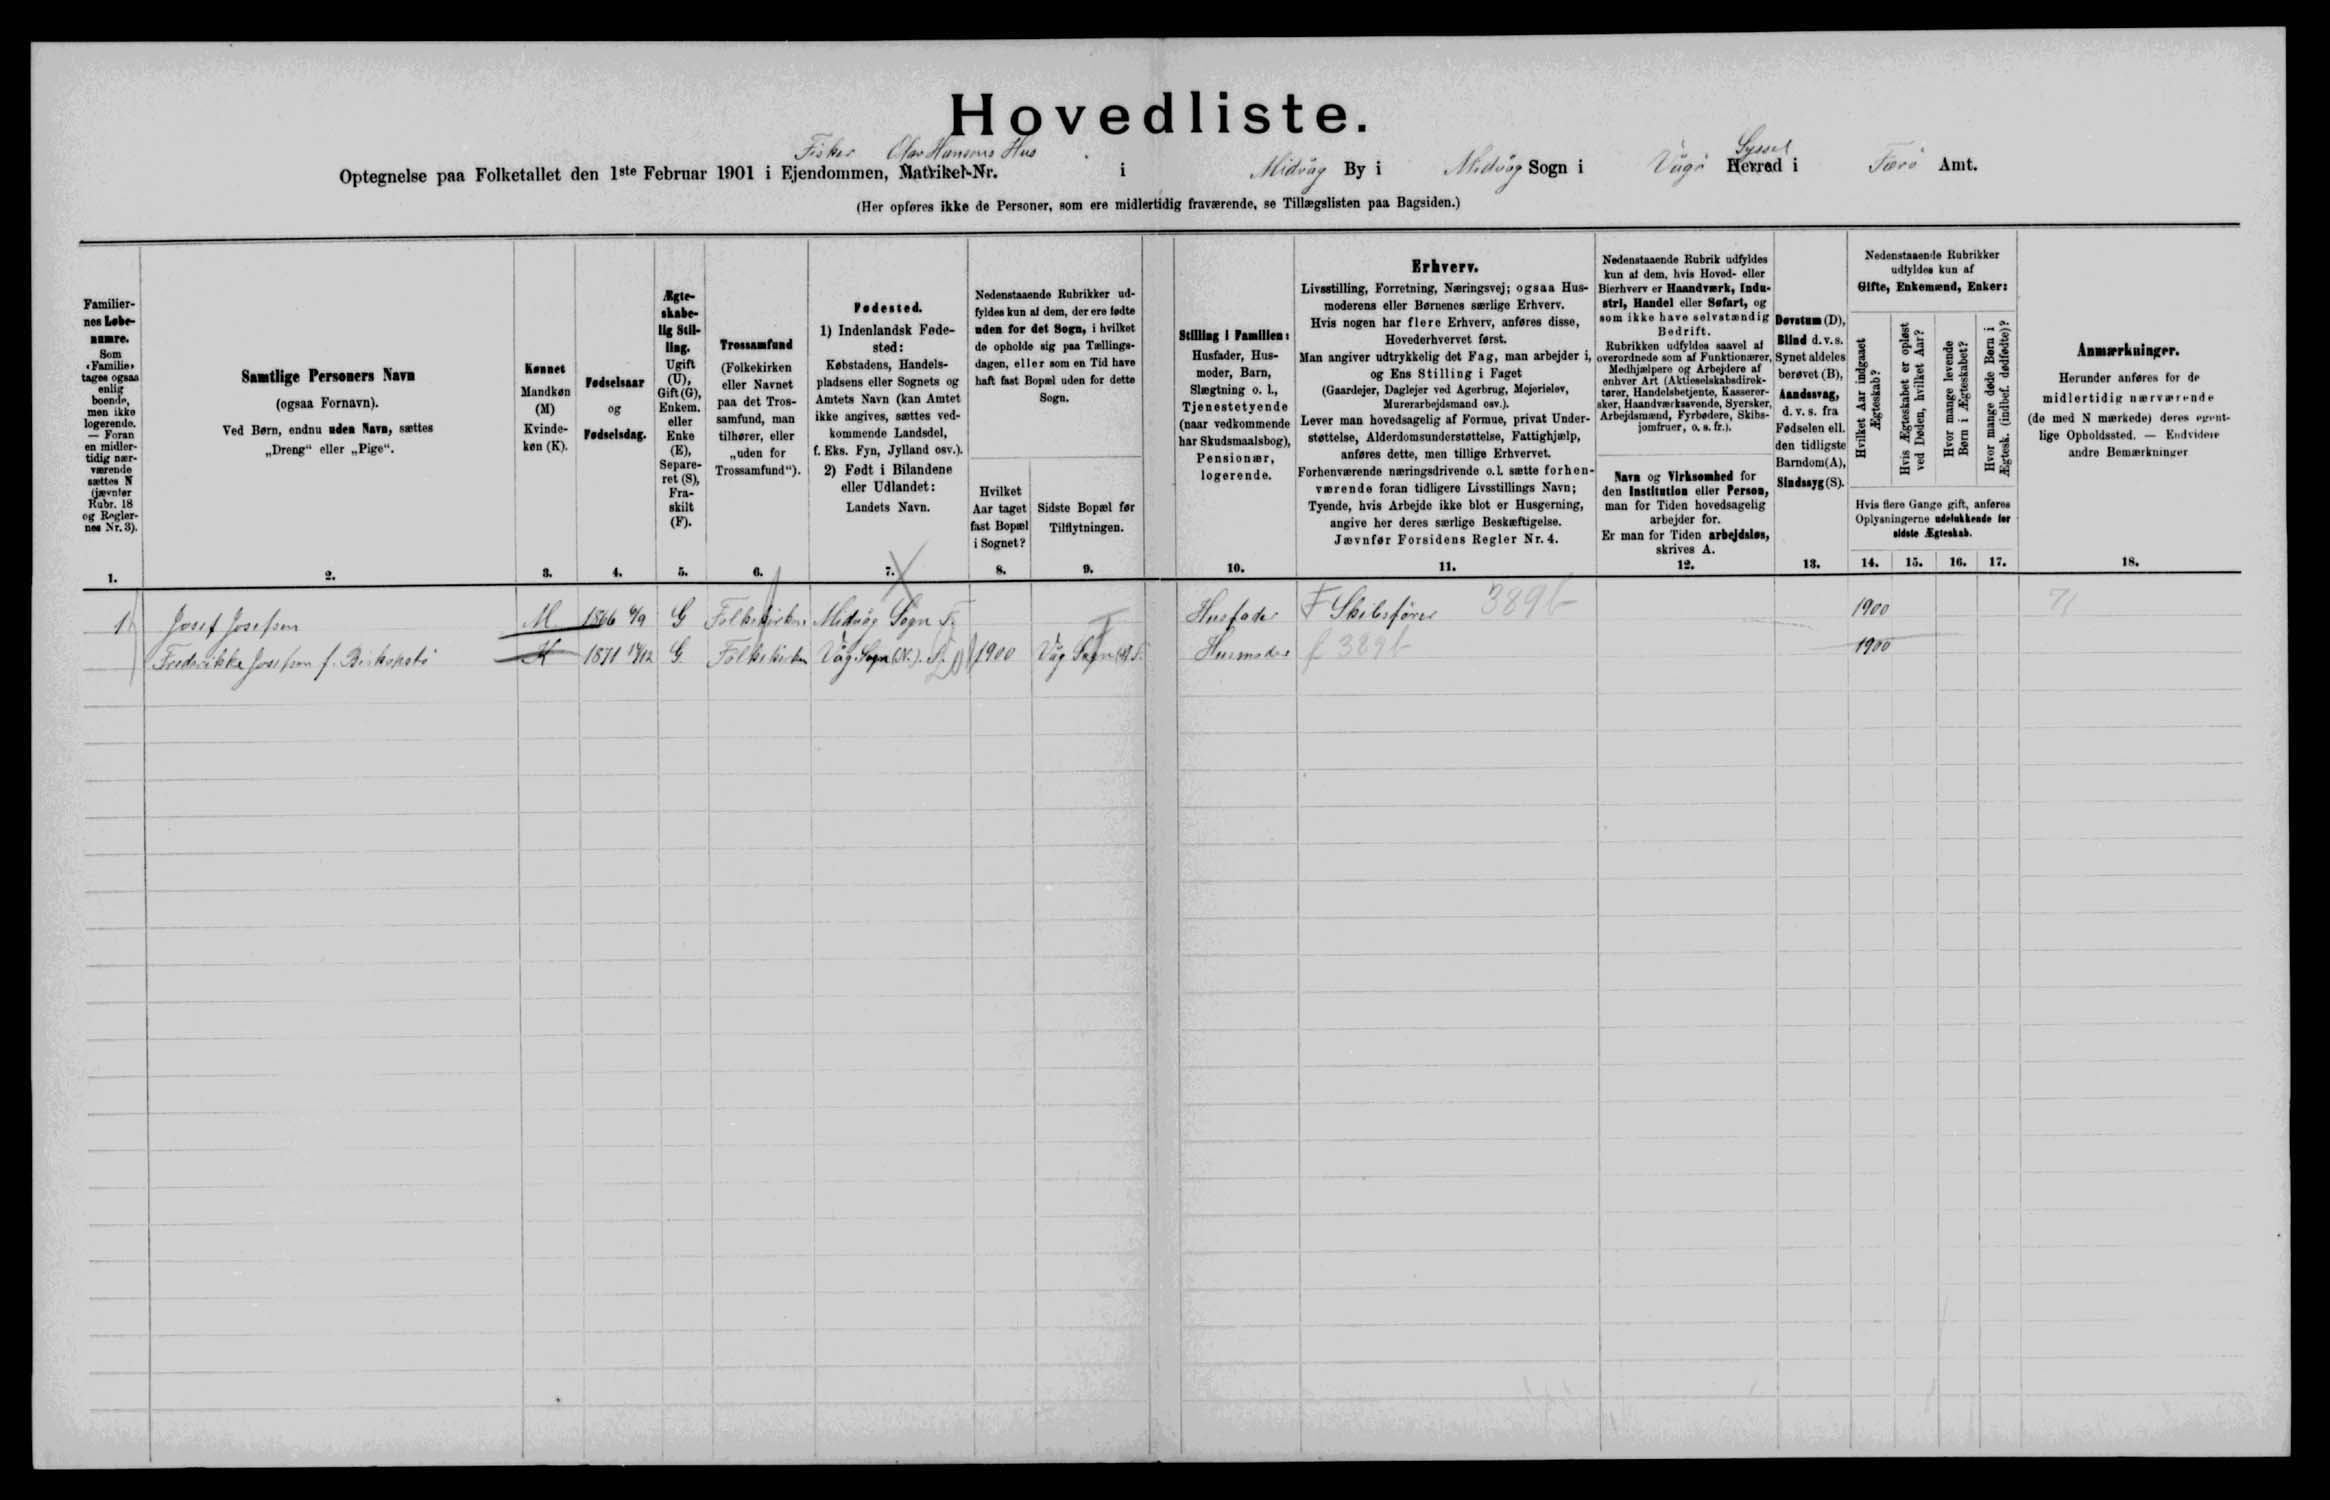 Hovedliste.
Fisker Olav Hansens Hus
Syssel
Optegnelse paa Folketallet den 1ste Februar 1901 i Ejendommen, Matrikel-Nr. i Midvåg By i Midvåg Sogn i Vågø Herred i Færø Amt.
(Her opføres ikke de Personer, som ere midlertidig fraværende, se Tillægslisten paa Bagsiden.)
Familiernes Løbenumre.
Som «Familie» tages ogsaa enlig boende, men ikke logerende. — Foran en midlertidig nærværende sættes N (jævnfør Rubr. 18 og Reglernes Nr. 3).
1.
Samtlige Personers Navn
(ogsaa Fornavn).
Ved Børn, endnu uden Navn, sættes
„Dreng“ eller „Pige“.
2.
Kønnet
Mandkøn (M) Kvindekøn (K).
3.
Fødselsaar
og
Fødselsdag.
4.
Ægteskabelig Stilling.
Ugift (U), Gift (G), Enkem. eller Enke (E), Separeret (S), Fraskilt (F).
5.
Trossamfund
(Folkekirken eller Navnet paa det Trossamfund, man tilhører, eller „uden for Trossamfund“).
6.
Fødested.
1) Indenlandsk Fødested:
Købstadens, Handelspladsens eller Sognets og Amtets Navn (kan Amtet ikke angives, sættes vedkommende Landsdel, f. Eks. Fyn, Jylland osv.).
2) Født i Bilandene eller Udlandet:
Landets Navn.
7.
Nedenstaaende Rubrikker udfyldes kun af dem, der ere fødte uden for det Sogn, i hvilket de opholde sig paa Tællingsdagen, eller som en Tid have haft fast Bopæl uden for dette Sogn.
Hvilket Aar taget fast Bopæl i Sognet?
8.
Sidste Bopæl før Tilflytningen.
9.
Stilling i Familien:
Husfader, Husmoder, Barn, Slægtning o. l., Tjenestetyende (naar vedkommende har Skudsmaalsbog), Pensionær, logerende.
10.
Erhverv.
Livsstilling, Forretning, Næringsvej; ogsaa Husmoderens eller Børnenes særlige Erhverv.
Hvis nogen har flere Erhverv, anføres disse, Hovederhvervet først.
Man angiver udtrykkelig det Fag, man arbejder i, og Ens Stilling i Faget
(Gaardejer, Daglejer ved Agerbrug, Mejerielev, Murerarbejdsmand osv.).
Lever man hovedsagelig af Formue, privat Understøttelse, Alderdomsunderstøttelse, Fattighjælp, anføres dette, men tillige Erhvervet.
Forhenværende næringsdrivende o.l. sætte forhenværende foran tidligere Livsstillings Navn;
Tyende, hvis Arbejde ikke blot er Husgerning, angive her deres særlige Beskæftigelse.
Jævnfør Forsidens Regler Nr. 4.
11.
Nedenstaaende Rubrik udfyldes kun af dem, hvis Hoved- eller Bierhverv er Haandværk, Industri, Handel eller Søfart, og som ikke have selvstændig Bedrift.
Rubrikken udfyldes saavel af overordnede som af Funktionærer, Medhjælpere og Arbejdere af enhver Art (Aktieselskabsdirektører, Handelsbetjente, Kasserersker, Haandværkssvende, Syersker, Arbejdsmænd, Fyrbødere, Skibsjomfruer, o. s. fr.).
Navn og Virksomhed for den Institution eller Person, man for Tiden hovedsagelig arbejder for.
Er man for Tiden arbejdsløs, skrives A.
12.
Døvstum (D), Blind d. v. s. Synet aldeles berøvet (B), Aandssvag, d. v. s. fra Fødselen ell. den tidligste Barndom (A), Sindssyg (S).
13.
Nedenstaaende Rubrikker udfyldes kun af
Gifte, Enkemænd, Enker:
Hvilket Aar indgaaet Ægteskab?
Hvis Ægteskabet er opløst ved Døden, hvilket Aar?
Hvor mange levende Børn i Ægteskabet?
Hvor mange døde Børn i Ægtesk. (indbef. dødfødte)?
Hvis flere Gange gift, anføres Oplysningerne udelukkende for sidste Ægteskab.
14. 15. 16. 17.
Anmærkninger.
Herunder anføres for de midlertidig nærværende (de med N mærkede) deres egentlige Opholdssted. — Endvidere andre Bemærkninger
18.
1 Josef Josefsen M 1866 G Folkekirken Midvåg Sogn F. Husfader F Skibsfører 389b 1900 71
Frederikke Josefsen f. Biskopstø K 1871 G Folkekirken Våg Sogn (N.). S. 1900 Våg Sogn Husmoder f 389b 1900